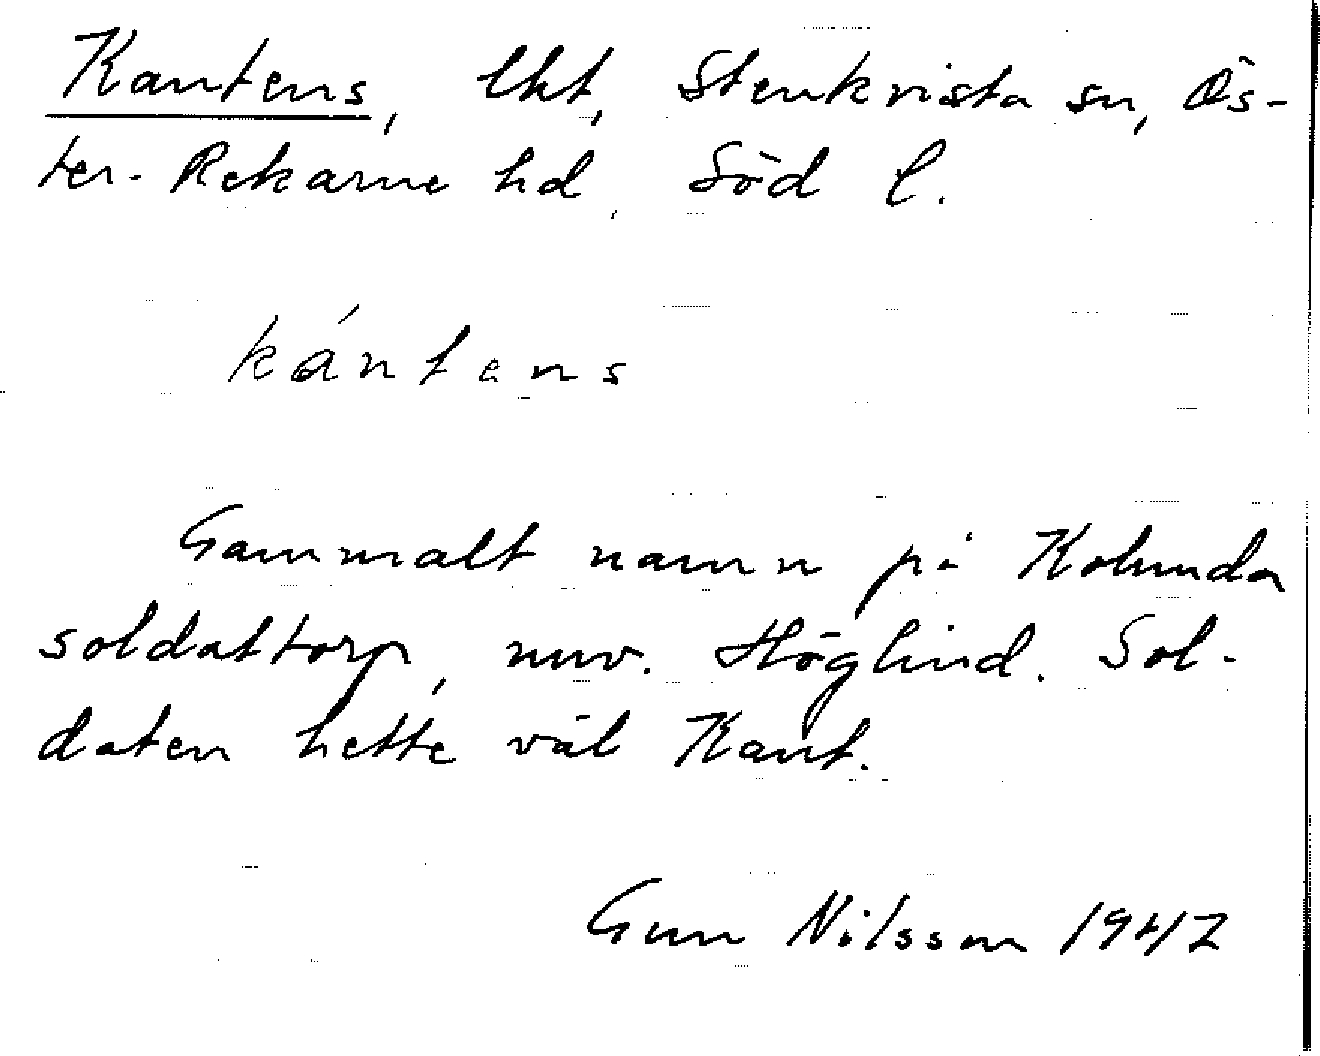 Kantens, lht, Stenkvista sn, Ös-
ter-Rekarne hd, Söd l.
kántens
Gammalt namn på Kolunda
soldattorp, nuv. Höglind. Sol-
daten hette väl Kant.
Gun Nilsson 1947